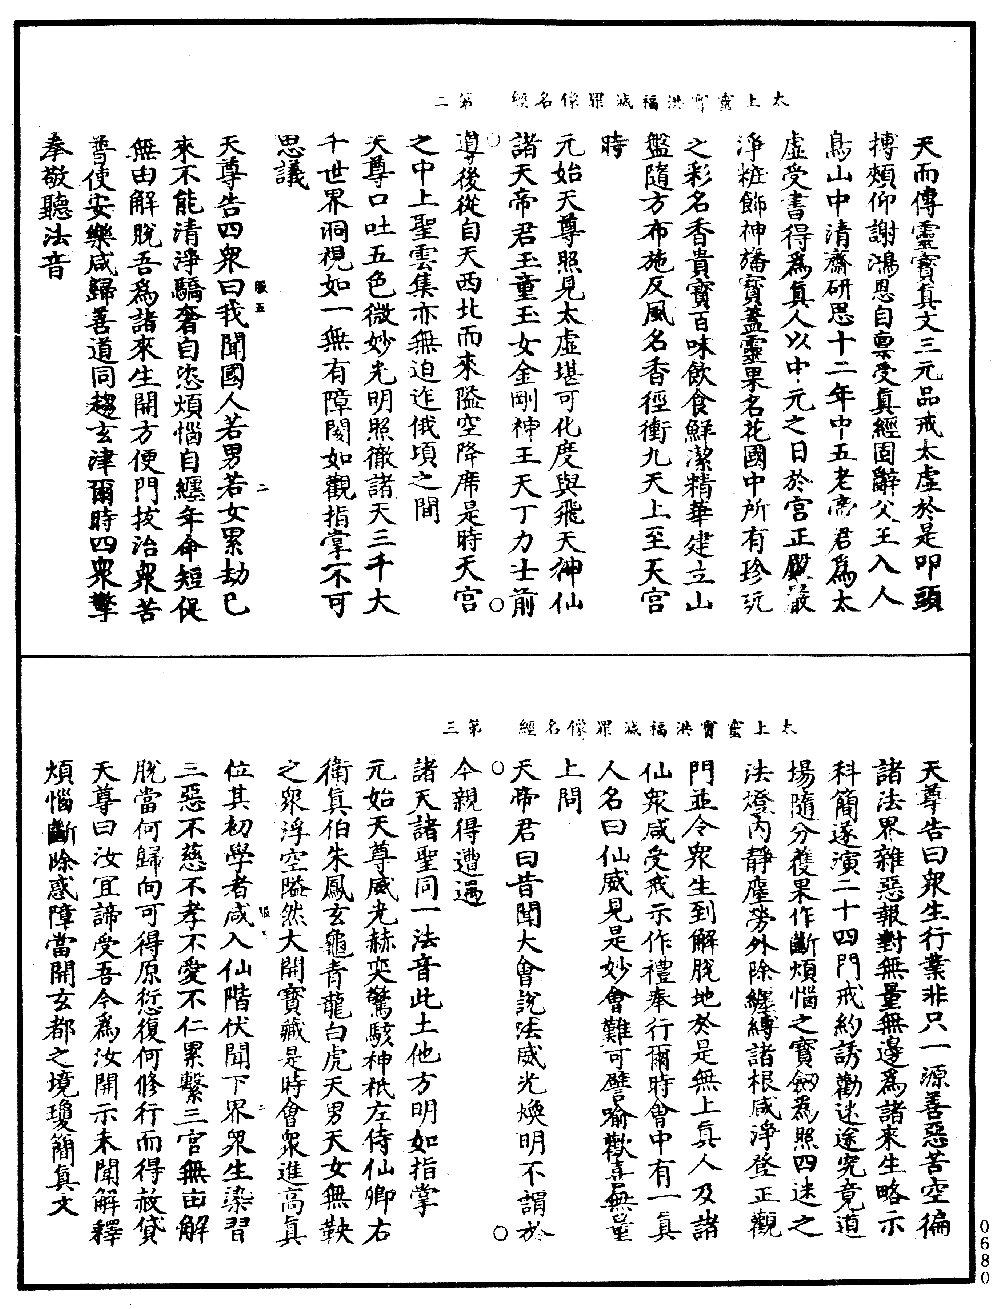 太上靈寶洪福滅罪像名經　第二
天而傳靈寶真文三元品戒太虛於是叩頭
搏頰仰謝鴻恩自稟受真經固辭父王入人
鳥山中清齋研思十二年中五老帝君為太
虛受書得為真人以中元之日於宮正殿嚴
淨粧飾神旛寶蓋靈果名花國中所有珍玩
之彩名香貴寶百味飲食鮮潔精華建立山
盤隨方布施反風名香徑衝九天上至天宮
時
元始天尊照見太虛堪可化度與飛天神仙
諸天帝君玉童玉女金剛神王天丁力士前
導後從自天西北而來隘空降席是時天宮
之中上聖雲集亦無迫迮俄頃之間
天尊口吐五色微妙光明照徹諸天三千大
千世界洞視如一無有障閡如觀指掌不可
思議
天尊告四眾曰我聞國人若男若女累劫已
來不能清淨驕奢自恣煩惱自纏年命短促
無由解脫吾為諸來生開方便門拔治眾苦
普使安樂咸歸善道同趨玄津爾時四眾擎
奉敬聽法音
太上靈寶洪福滅罪像名經　第三
天尊告曰眾生行業非只一源善惡苦空徧
諸法界雜惡報對無量無邊為諸來生略示
科簡遂演二十四門戒約誘勸迷途究竟道
場隨分獲果作斷煩惱之寶劒為照四迷之
法燈內靜塵勞外除纏縛諸根咸淨登正觀
門並令眾生到解脫地於是無上真人及諸
仙眾咸受戒示作禮奉行爾時會中有一真
人名曰仙威見是妙會難可譬喻歡喜無量
上問
天帝君曰昔聞大會說法威光煥明不謂於
今親得遭遇
諸天諸聖同一法音此土他方明如指掌
元始天尊威光赫奕驚駭神祇左侍仙卿右
衛真伯朱鳳玄龜青龍白虎天男天女無鞅
之眾浮空隘然大開寶藏是時會眾進高真
位其初學者咸入仙階伏聞下界眾生染習
三惡不慈不孝不愛不仁累繫三官無由解
脫當何歸向可得原愆復何修行而得赦貸
天尊曰汝宜諦受吾今為汝開示未聞解釋
煩惱斷除惑障當開玄都之境瓊簡真文
0680